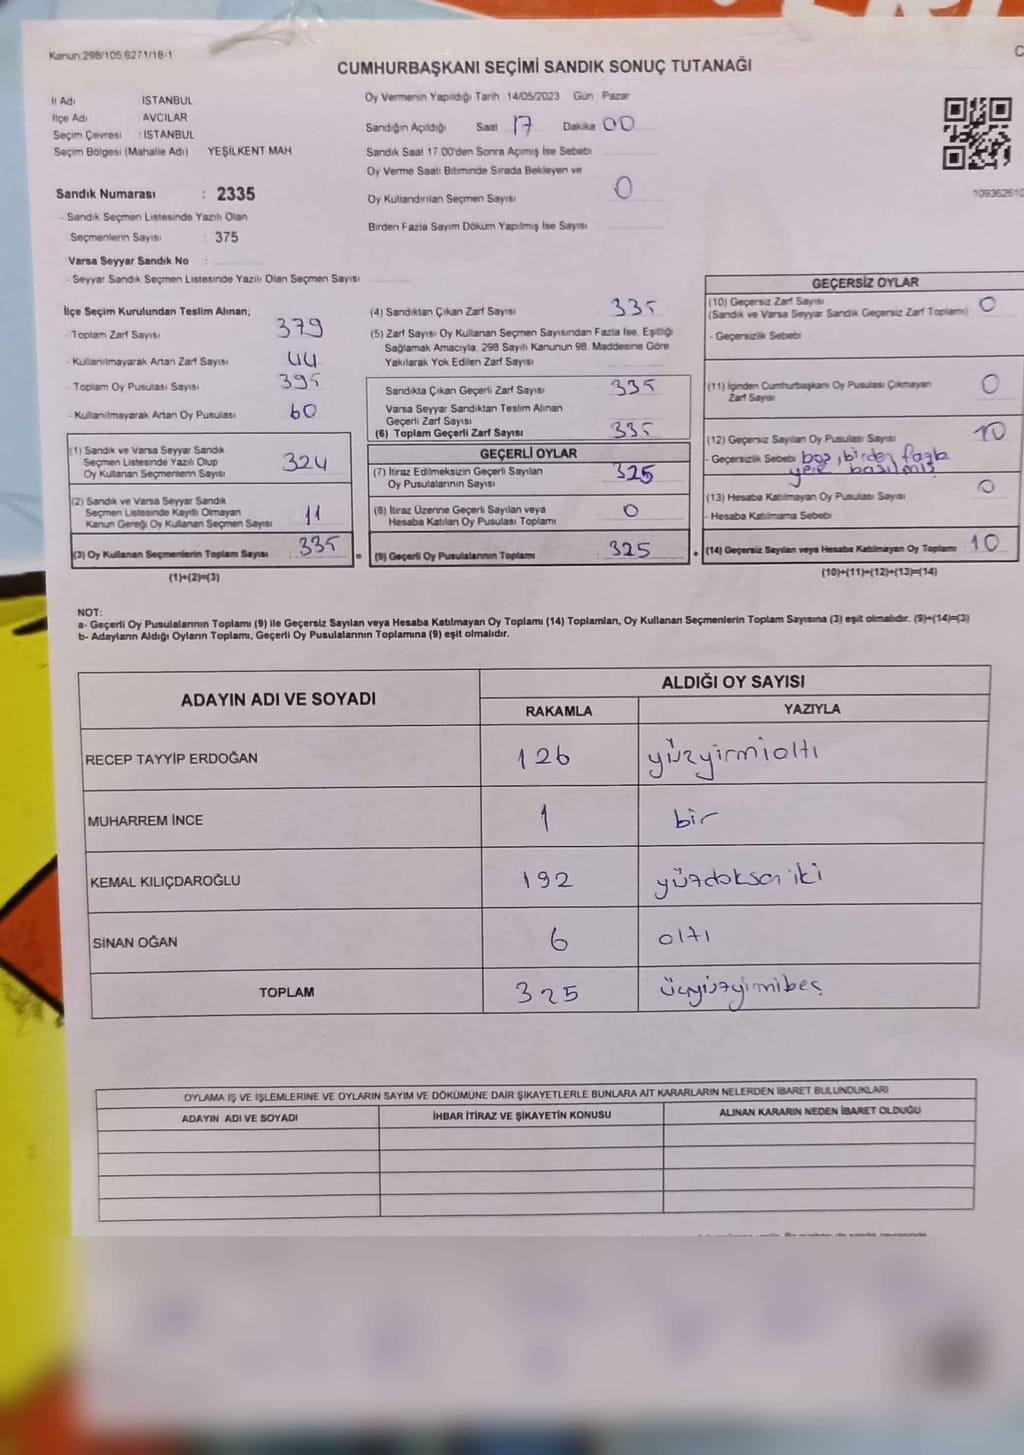 Kanun:298/105;6271/18-1
CUMHURBAŞKANI SEÇİMİ SANDIK SONUÇ TUTANAĞI
İl Adı İSTANBUL
İlçe Adı AVCILAR
Seçim Çevresi : İSTANBUL
Seçim Bölgesi (Mahalle Adı) YEŞİLKENT MAH
Oy Vermenin Yapıldığı Tarih 14/05/2023 Gün Pazar
Sandığın Açıldığı Saat 17 Dakika 00
Sandık Saat 17:00'den Sonra Açımış İse Sebebi
Oy Verme Saati Bitiminde Sırada Bekleyen ve
Oy Kullandırılan Seçmen Sayısı 0
Birden Fazla Sayım Döküm Yapılmış İse Sayısı
Sandık Numarası : 2335
- Sandık Seçmen Listesinde Yazılı Olan
Seçmenlerin Sayısı : 375
Varsa Seyyar Sandık No :
- Seyyar Sandık Seçmen Listesinde Yazılı Olan Seçmen Sayısı
İlçe Seçim Kurulundan Teslim Alınan;
- Toplam Zarf Sayısı 379
- Kullanılmayarak Artan Zarf Sayısı 44
- Toplam Oy Pusulası Sayısı 395
- Kullanılmayarak Artan Oy Pusulası 60
(1) Sandık ve Varsa Seyyar Sandık
Seçmen Listesinde Yazılı Olup
Oy Kullanan Seçmenlerin Sayısı 324
(2) Sandık ve Varsa Seyyar Sandık
Seçmen Listesinde Kayıtlı Olmayan
Kanun Gereği Oy Kullanan Seçmen Sayısı 11
(3) Oy Kullanan Seçmenlerin Toplam Sayısı : 335 =
(1)+(2)=(3)
(4) Sandıktan Çıkan Zarf Sayısı 335
(5) Zarf Sayısı Oy Kullanan Seçmen Sayısından Fazla İse, Eşitliği
Sağlamak Amacıyla, 298 Sayılı Kanunun 98. Maddesine Göre
Yakılarak Yok Edilen Zarf Sayısı
Sandıkta Çıkan Geçerli Zarf Sayısı 335
Varsa Seyyar Sandıktan Teslim Alınan
Geçerli Zarf Sayısı
(6) Toplam Geçerli Zarf Sayısı 335
GEÇERLİ OYLAR
(7) İtiraz Edilmeksizin Geçerli Sayılan
Oy Pusulalarının Sayısı 325
(8) İtiraz Üzerine Geçerli Sayılan veya
Hesaba Katılan Oy Pusulası Toplamı 0
(9) Geçerli Oy Pusulalarının Toplamı : 325 +
GEÇERSİZ OYLAR
(10) Geçersiz Zarf Sayısı 0
(Sandık ve Varsa Seyyar Sandık Geçersiz Zarf Toplamı)
- Geçersizlik Sebebi
(11) İçinden Cumhurbaşkanı Oy Pusulası Çıkmayan
Zarf Sayısı 0
(12) Geçersiz Sayılan Oy Pusulası Sayısı 10
- Geçersizlik Sebebi boş, birden fazla
yere basılmış
(13) Hesaba Katılmayan Oy Pusulası Sayısı 0
- Hesaba Katılmama Sebebi
(14) Geçersiz Sayılan veya Hesaba Katılmayan Oy Toplamı 10
(10)+(11)+(12)+(13)=(14)
NOT:
a- Geçerli Oy Pusulalarının Toplamı (9) ile Geçersiz Sayılan veya Hesaba Katılmayan Oy Toplamı (14) Toplamları, Oy Kullanan Seçmenlerin Toplam Sayısına (3) eşit olmalıdır. (9)+(14)=(3)
b- Adayların Aldığı Oyların Toplamı, Geçerli Oy Pusulalarının Toplamına (9) eşit olmalıdır.
ADAYIN ADI VE SOYADI ALDIĞI OY SAYISI
RAKAMLA YAZIYLA
RECEP TAYYİP ERDOĞAN 126 yüzyirmialtı
MUHARREM İNCE 1 bir
KEMAL KILIÇDAROĞLU 192 yüzdoksan iki
SİNAN OĞAN 6 altı
TOPLAM 325 üçyüzyirmibeş
OYLAMA İŞ VE İŞLEMLERİNE VE OYLARIN SAYIM VE DÖKÜMÜNE DAİR ŞİKAYETLERLE BUNLARA AİT KARARLARIN NELERDEN İBARET BULUNDUKLARI
ADAYIN ADI VE SOYADI İHBAR İTİRAZ VE ŞİKAYETİN KONUSU ALINAN KARARIN NEDEN İBARET OLDUĞU